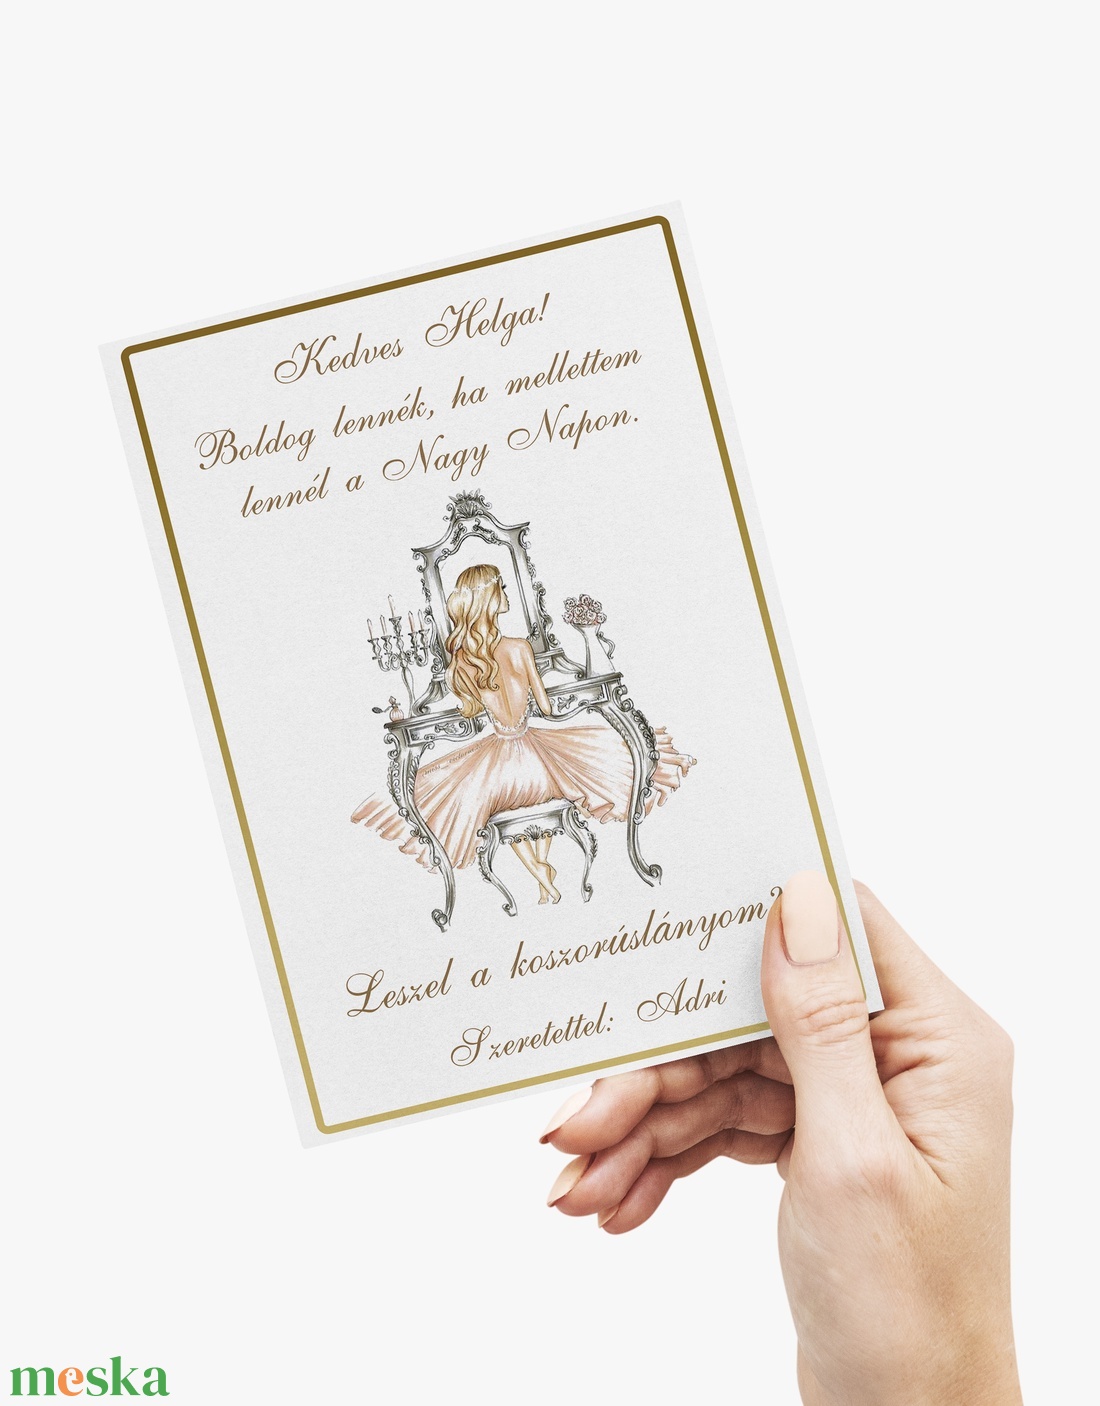 Kedves Helga!
Boldog lennék, ha mellettem
lennél a Nagy Napon.
Leszel a koszorúslányom?
Szeretettel: Adri
meska